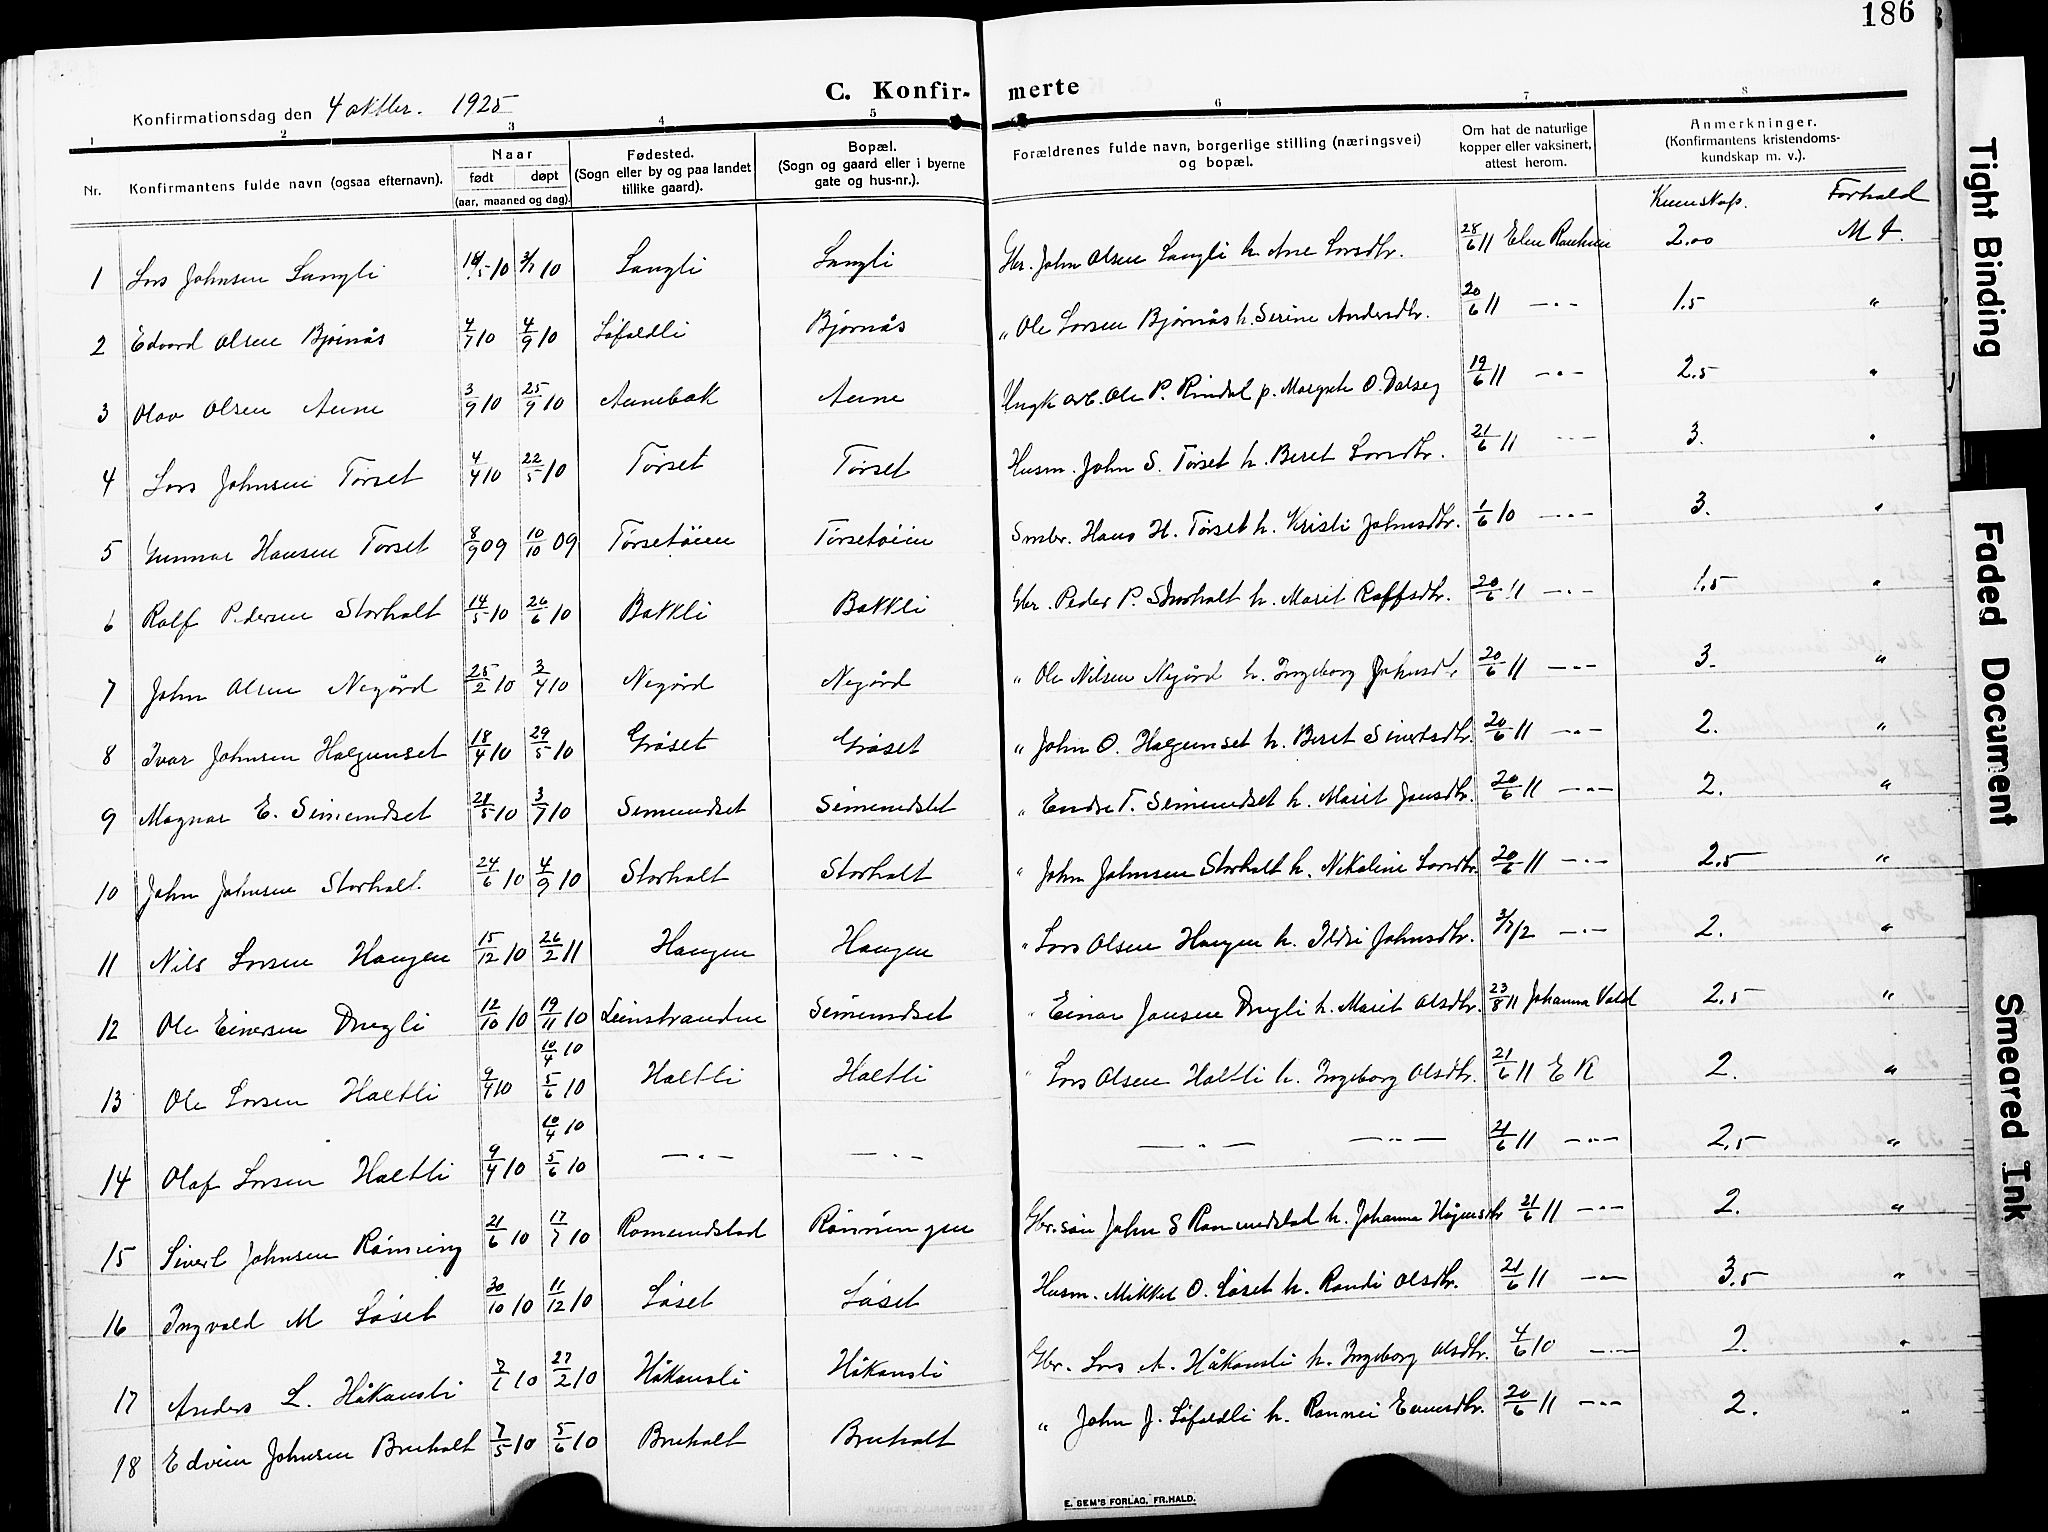 186
C. Konfir- merte
Konfirmationsdag den 4 oktbr. 1925
1 2 3 4 5 6 7 8
Nr.
Konfirmantens fulde navn (ogsaa efternavn).
Naar
født døpt
(aar, maaned og dag).
Fødested.
(Sogn eller by og paa landet
tillike gaard).
Bopæl.
(Sogn og gaard eller i byerne
gate og hus-nr.).
Forældrenes fulde navn, borgerlige stilling (næringsvei)
og bopæl.
Om hat de naturlige
kopper eller vaksinert,
attest herom.
Anmerkninger.
(Konfirmantens kristendoms-
kundskap m. v.).
Kunnskap. Forhold
1 Lars Johnsen Langli /5 10 3/7 10 Langli Langli Gbr. John Olsen Langli h. Ane Larsdtr. 28/6 11 2.00 M t.
2 Edvard Olsen Bjørnås 4/7 10 4/9 10 Løfaldli Bjørnås " Ole Larsen Bjørnås h. Serine Andersdtr. 20/6 11 -"- 1.5 "
3 Olav Olsen Aune 3/9 10 25/9 10 Aunebak Aune Ungk. arb. Ole P. Rindal p. Margrete O. Dalseg 19/6 11 -"- 2.5 "
4 Lars Johnsen Tørset 4/4 10 22/5 10 Tørset Tørset Husm. John S. Tørset h. Beret Larsdtr. 21/6 11 -"- 3. "
5 Gunnar Hansen Tørset 8/9 09 10/10 09 Tørsetøien Tørsetøien Smbr. Hans H. Tørset h. Kristi Johnsdtr. 1/6 10 -"- 3. "
6 Rolf Pedersen Storholt 14/5 10 26/6 10 Bakkli Bakkli Gbr. Peder P. Storholt h. Marit Rolfsdtr. 20/6 11 -"- 1.5 "
7 John Olsen Negård 25/2 10 3/4 10 Negård Negård " Ole Nilsen Negård h. Ingeborg Johnsdtr 20/6 11 -"- 3. "
8 Ivar Johnsen Halgunset 18/4 10 29/5 10 Grøset Grøset " John O. Halgunset h. Beret Sivertsdtr. 20/6 11 -"- 2. "
9 Magnar E. Simundset 28/5 10 3/7 10 Simundset Simundset " Endre T. Simundset h. Marit Jonsdtr. 20/6 11 -"- 2. "
10 John Johnsen Storholt 24/6 10 4/9 10 Storholt Storholt " John Johnsen Storholt h. Nikoline Larsdtr. 20/6 11 -"- 2.5 "
11 Nils Larsen Haugen 15/12 10 26/2 11 Haugen Haugen " Lars Olsen Haugen h. Ildri Johnsdtr. 3/7 12 -"- 2. "
12 Ole Einarsen Drugli 12/10 10 19/11 10 Leinstranden Simundset " Einar Jonsen Drugli h. Marit Olsdtr. 23/8 11 Johanna Vold 2.5 "
13 Ole Larsen Holtli 9/4 10 10/4 10 5/6 10 Holtli Holtli " Lars Olsen Holtli h. Ingeborg Olsdtr. 21/6 11 E K 2. "
14 Olaf Larsen Holtli 9/4 10 10/4 10 5/6 10 -"- -"- -"- -"- 21/6 11 -"- 2.5 "
15 Sivert Johnsen Rønning 21/6 10 17/7 10 Romundstad Rønningen Gbr.søn John S Romundstad h. Johanna Hågensdtr 21/6 11 -"- 2. "
16 Ingvald M Løset 30/10 10 11/12 10 Løset Løset Husm. Mikkel O. Løset h. Randi Olsdtr. 21/6 11 -"- 3.5 "
17 Anders L. Håkansli 7/1 10 27/2 10 Håkansli Håkansli Gbr. Lars A. Håkansli h. Ingeborg Olsdtr. 4/6 10 -"- 2. "
18 Edvin Johnsen Bruholt 7/5 10 5/6 10 Bruholt Bruholt " John J. Løfaldli h. Rannei Evensdtr. 20/6 11 -"- 2. "
E. SEM'S FORLAG, FR.HALD.
Tight Binding
Faded Document
Smeared Ink